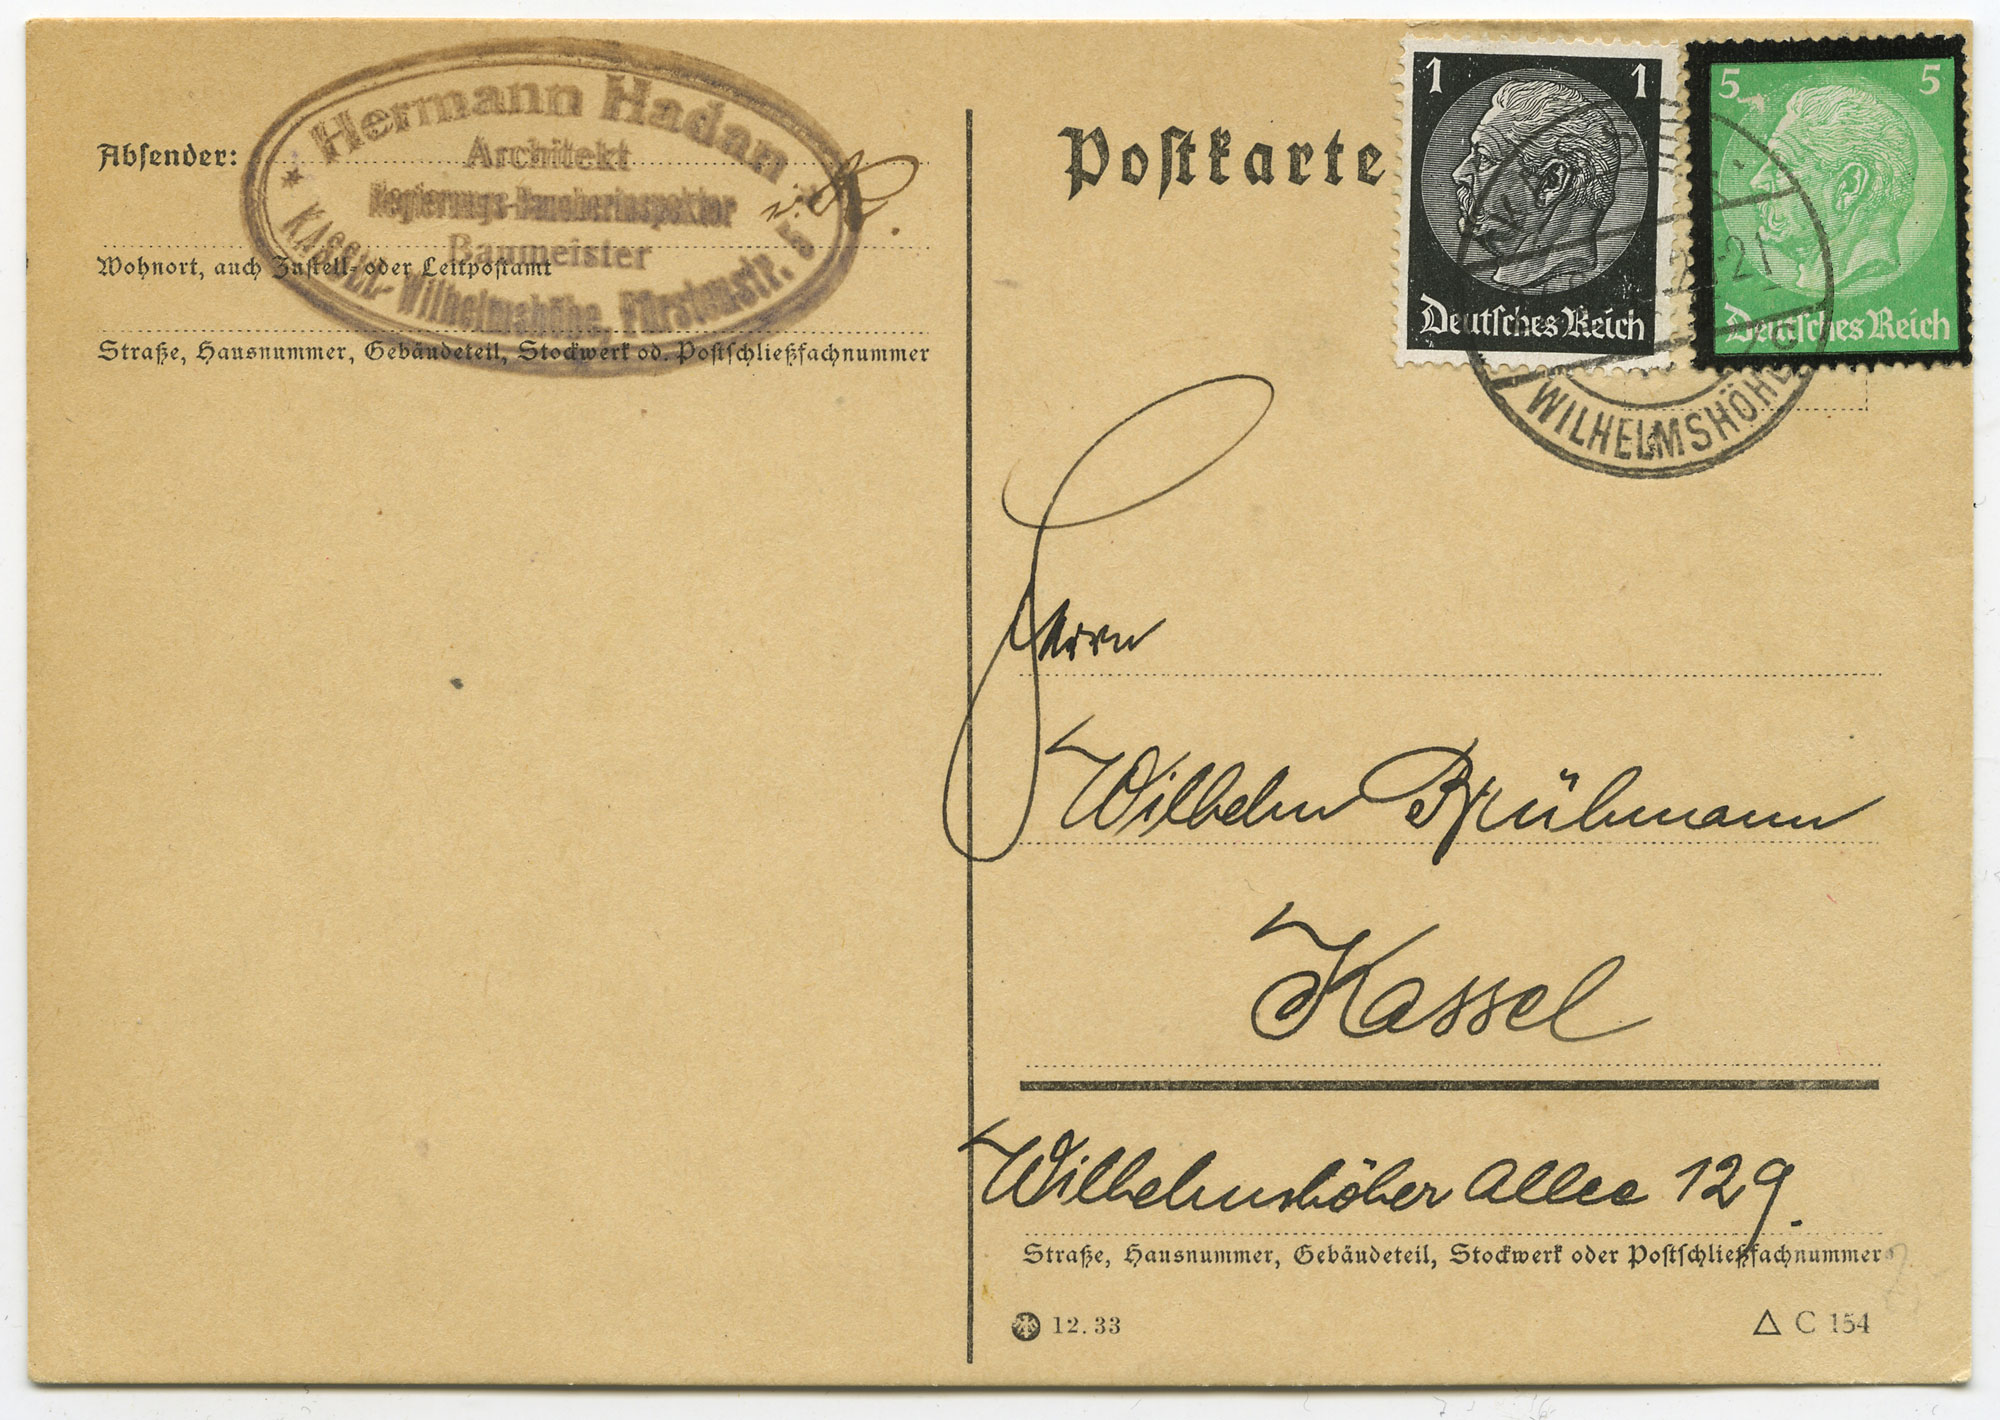 Absender:
Hermann Hadan
Architekt
Regierungs-Bauoberinspektor
Baumeister
KASSEL-Wilhelmshöhe, Fürstenstr. 5
Wohnort, auch Zustell- oder Leitpostamt
Straße, Hausnummer, Gebäudeteil, Stockwerk od. Postschließfachnummer
Postkarte
1 1
Deutsches Reich
5 5
Deutsches Reich
WILHELMSHÖHE
Herrn
Wilhelm Brühmann
Kassel
Wilhelmshöher Allee 129.
Straße, Hausnummer, Gebäudeteil, Stockwerk oder Postschließfachnummer
12. 33
△ C 154